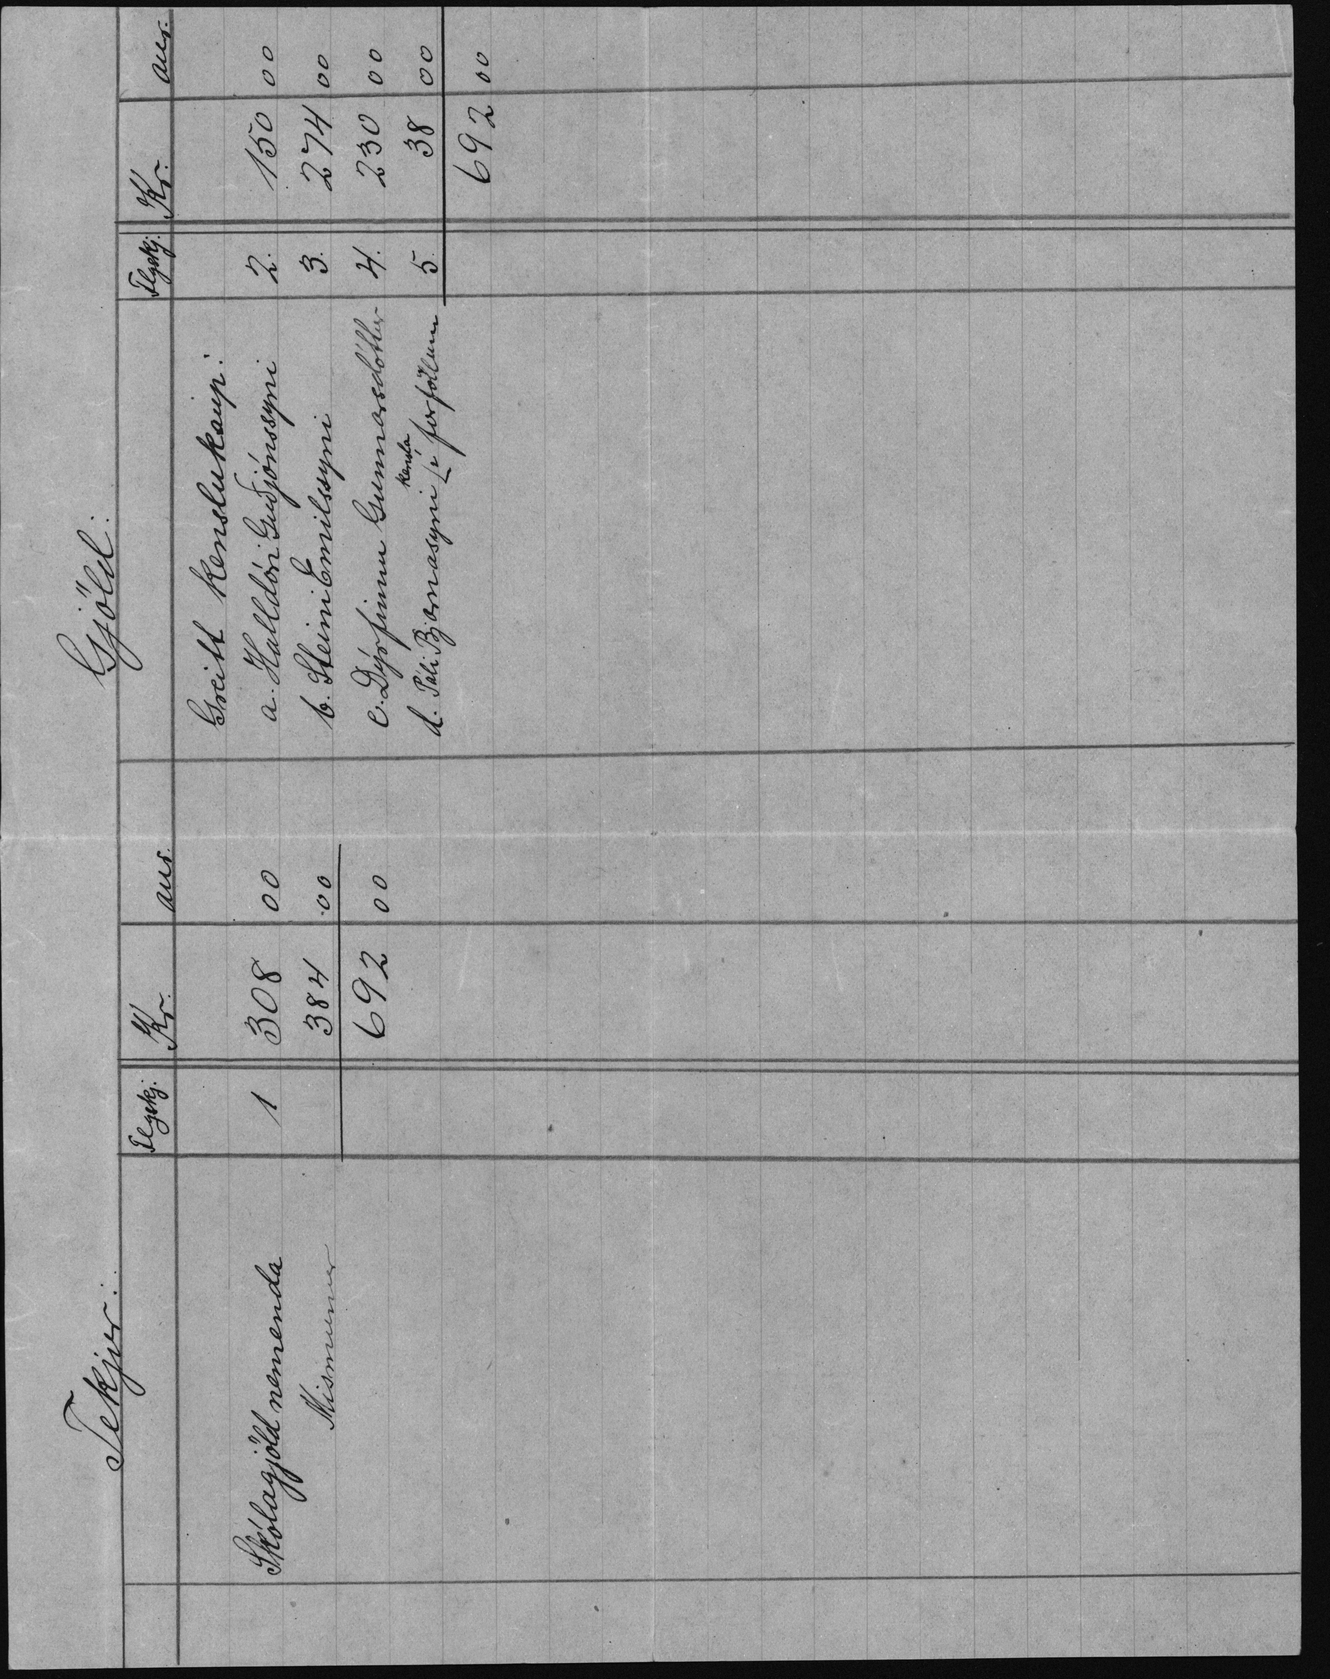 Tekjur:
Flgskj. Kr. aur.
Skólagjöld nemenda 1 308 00
Mismunur 384 00
692 00
Gjöld:
Flgskj. Kr. aur.
Greitt kenslukaup:
a. Halldóri Guðjónssyni 2. 150 00
b. Steini Emilssyni 3. 274 00
c. Dýrfinnu Gunnarsdóttur 4. 230 00
kensla
d. Páli Bjarnasyni í forföllum 5 38 00
692 00